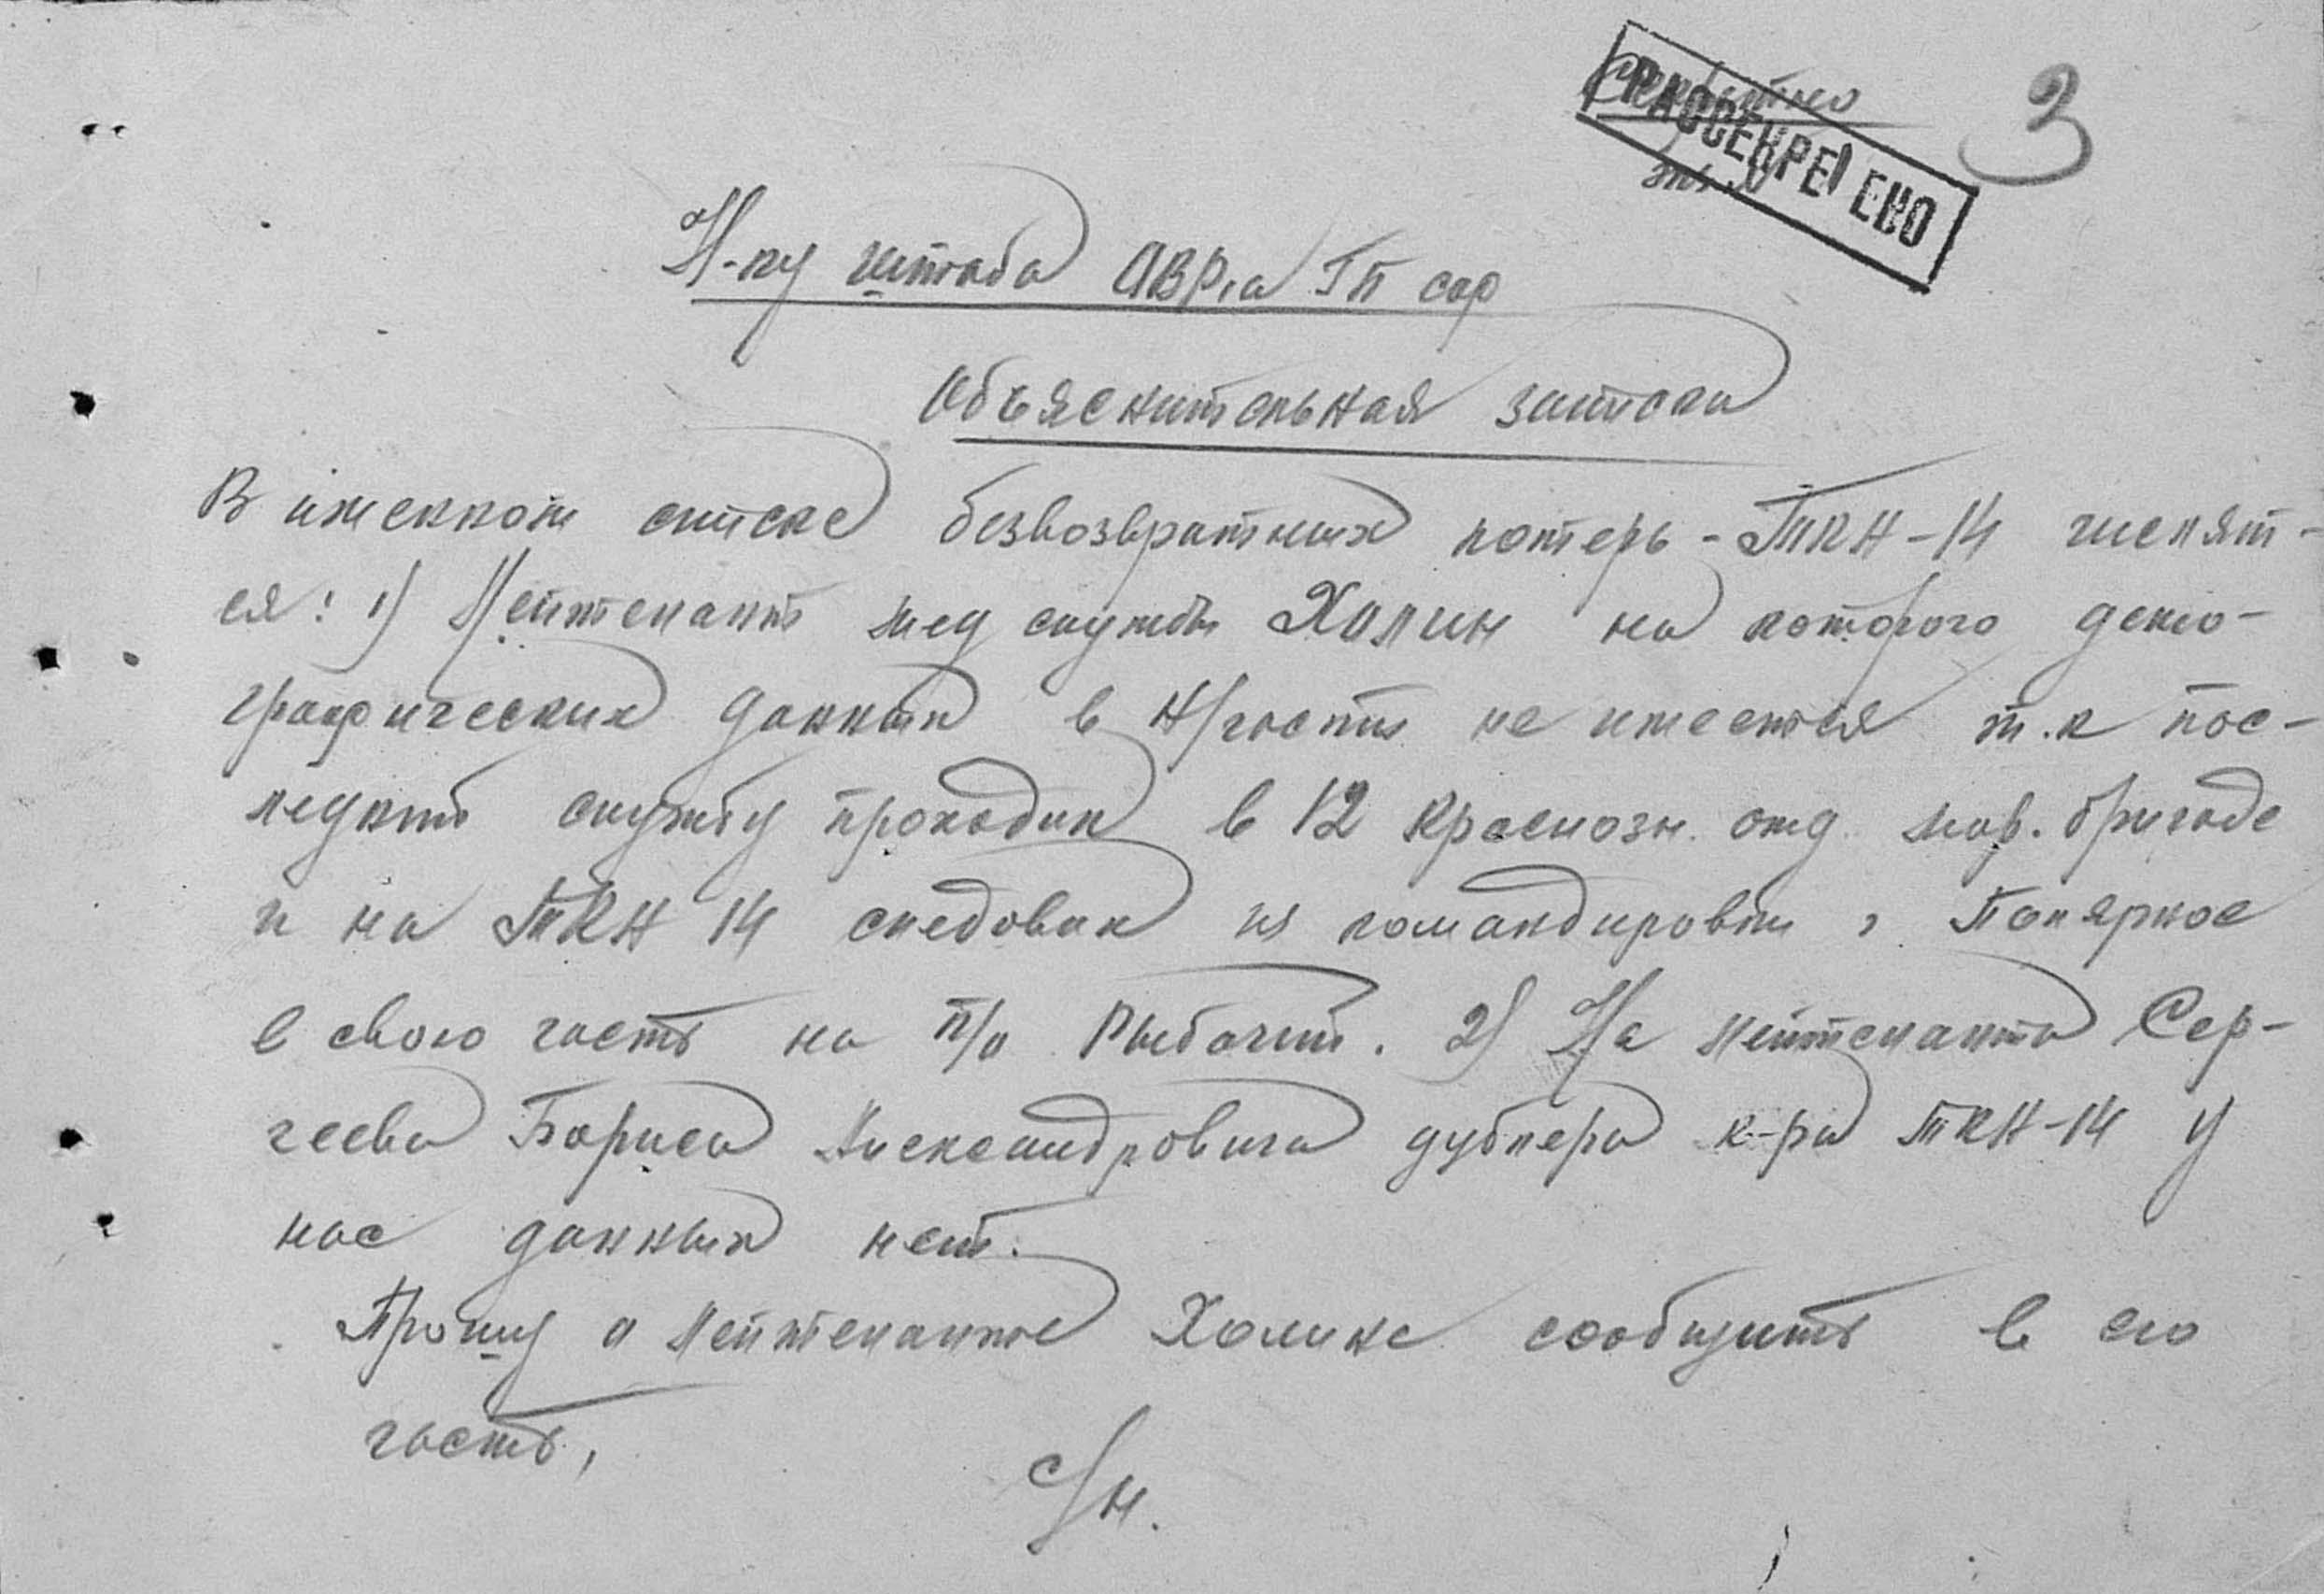 Секретно
РАССЕКРЕЧЕНО
3
экз.
Н-ку штаба ОВР,а ГБ СФ
Объяснительная записка
В именном списке безвозвратных потерь - ТКА-14 числят-
ся: 1) Лейтенант мед службы Халин на которого демо-
графических данных в н/части не имеется т.к пос-
ледний службу проходил в 12 Краснозн. отд. мор. бригаде
и на ТКА 14 следовал из командировки г. Полярное
в свою часть на п/о Рыбачий. 2) На лейтенанта Сер-
геева Бориса Александровича дублера к-ра ТКА-14 у
нас данных нет.
Прошу о лейтенанте Халине сообщить в его
часть,